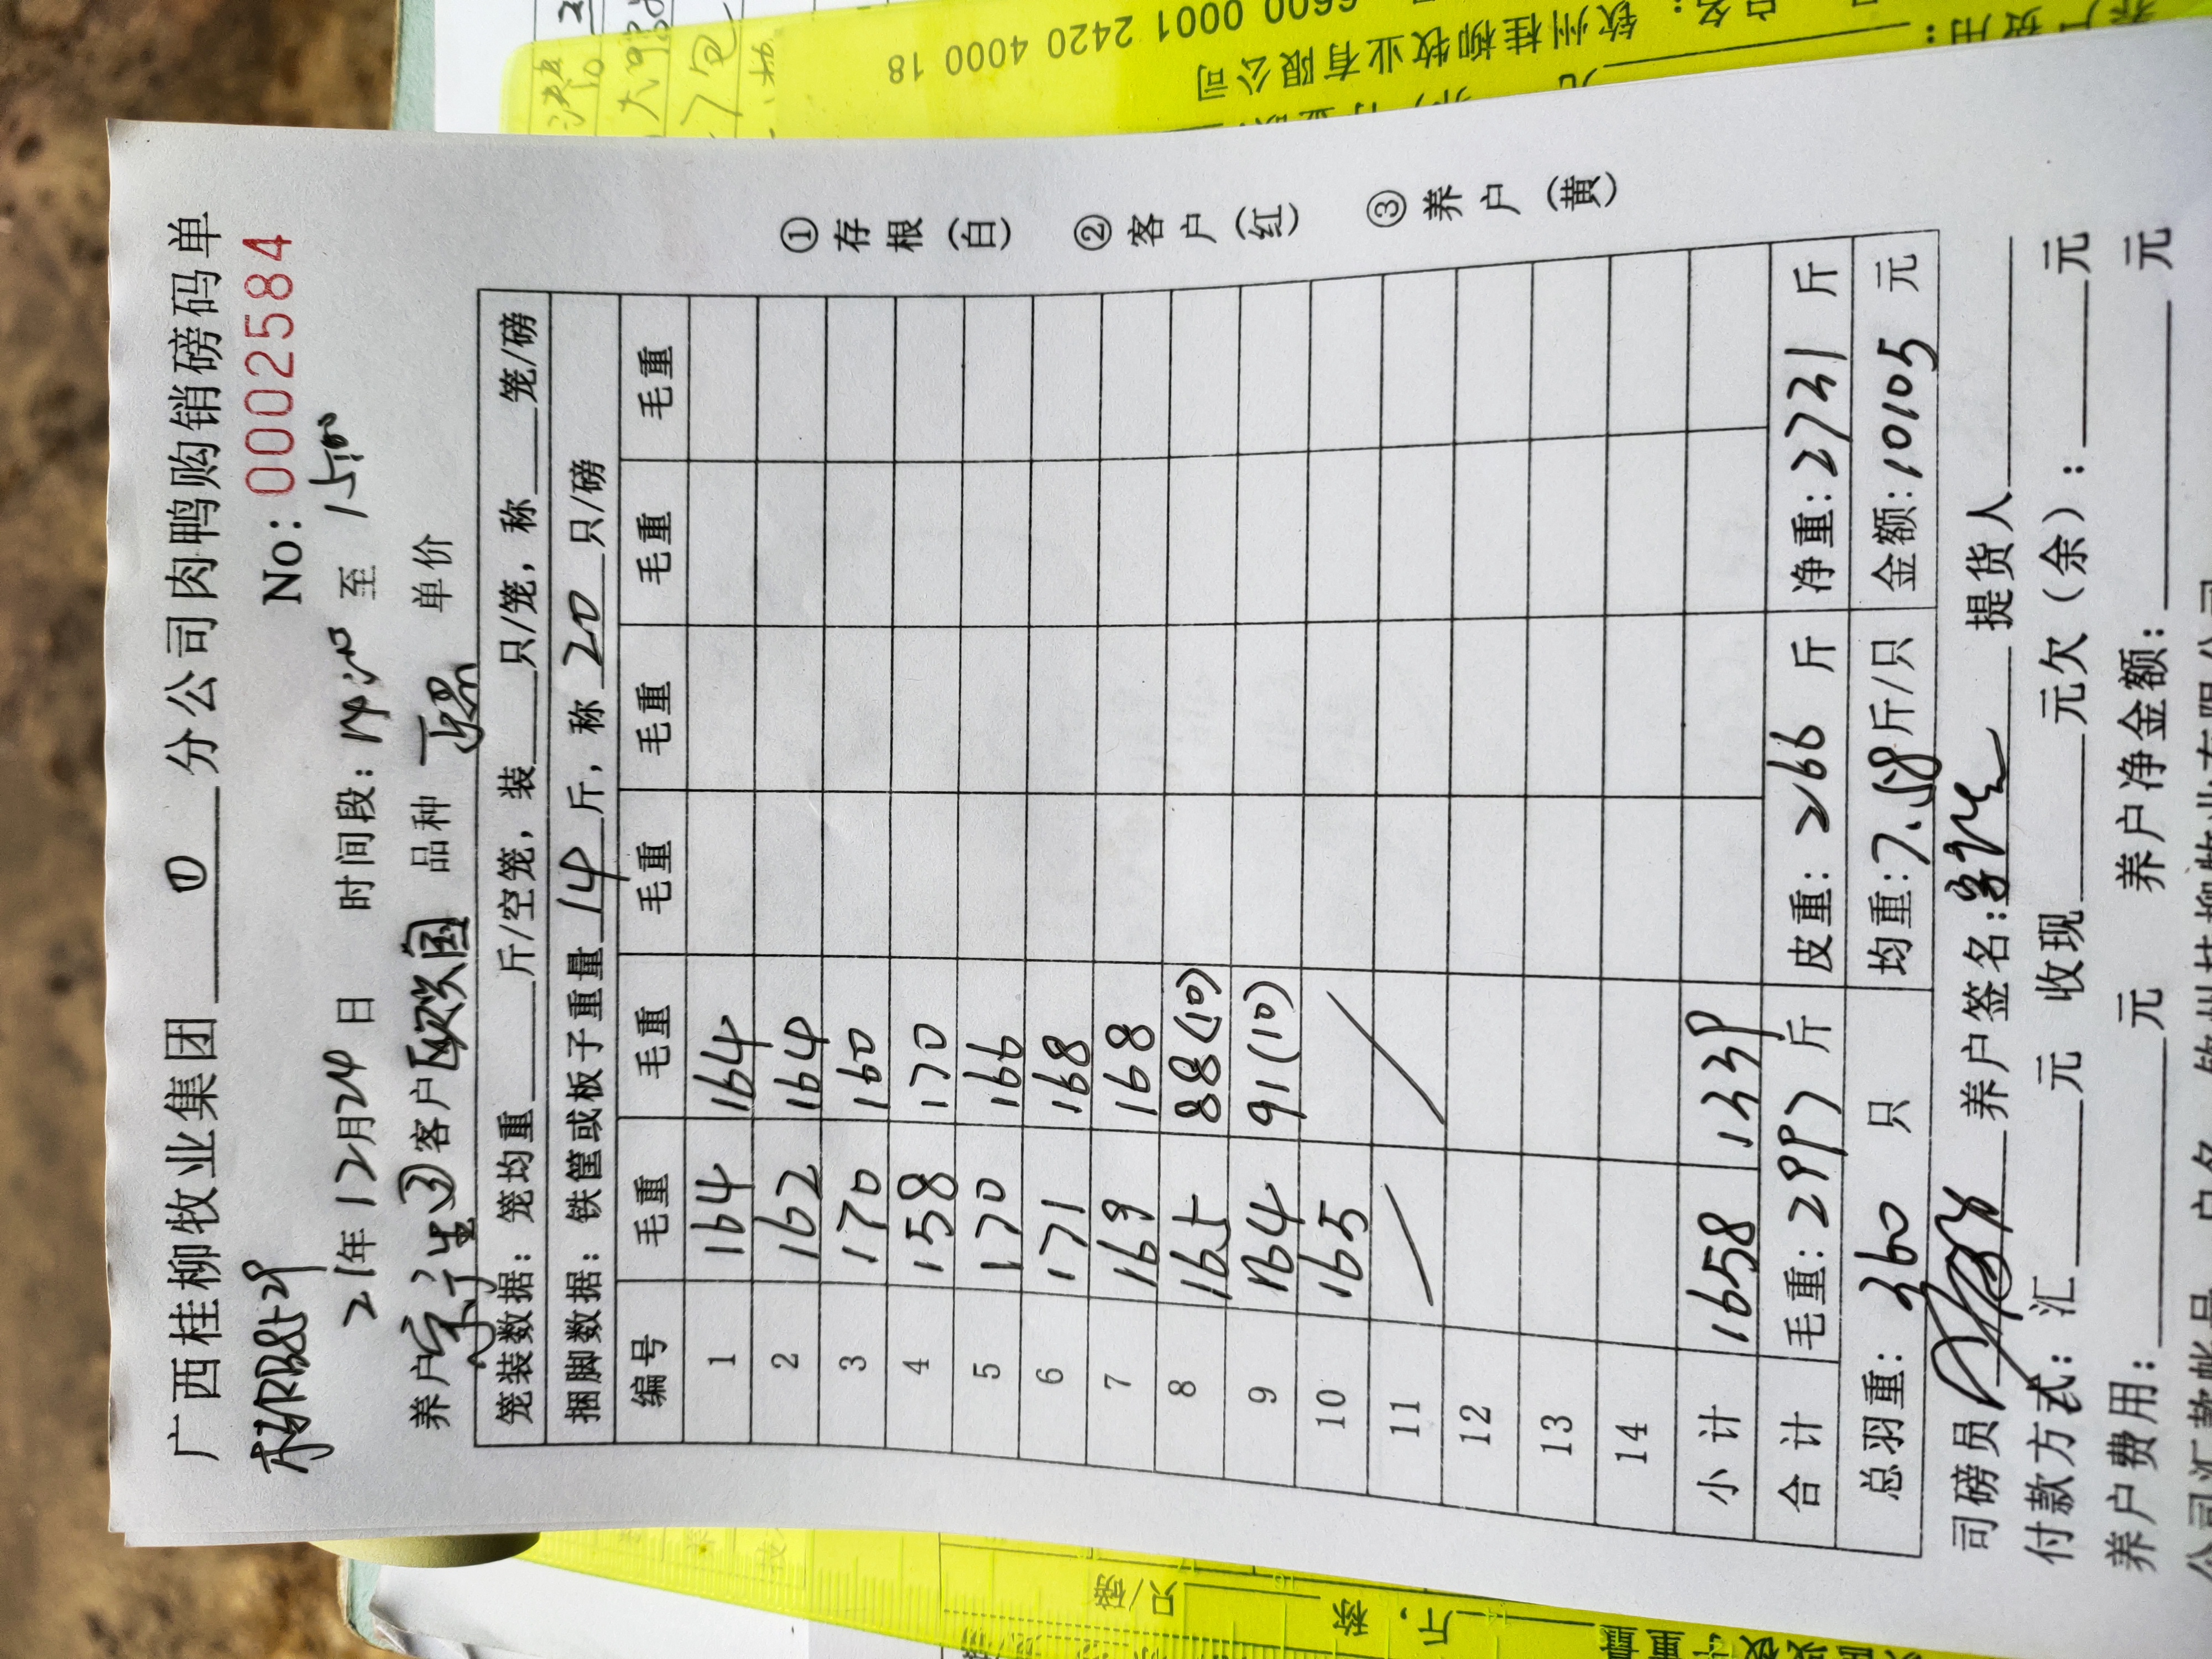 广西桂柳牧业集团 ① 分公司肉鸭购销磅码单
No: 0002584
21年12月24日 时间段: 14:20 至 15:00
养户 ③ 客户 欧国 品种 单价
笼装数据: 笼均重 斤/空笼, 装 只/笼, 称 笼/磅
捆脚数据: 铁筐或板子重量 14 斤, 称 20 只/磅
编号 毛重 毛重 毛重 毛重 毛重 毛重
1 164 164
2 162 164
3 170 160
4 158 170
5 170 166
6 171 168
7 169 168
8 165 88(10)
9 164 91(10)
10 165
11
12
13
14
小计 1658 1339
合计 毛重: 2997 斤 皮重: 266 斤 净重: 2731 斤
总羽重: 360 只 均重: 7.58 斤/只 金额: 10105 元
① 存根 (白) ② 客户 (红) ③ 养户 (黄)
司磅员 养户签名: 提货人
付款方式: 汇 元 收现 元欠 (余): 元
养户费用: 元 养户净金额: 元
钦州桂柳牧业有限公司
6600 0001 2420 4000 18